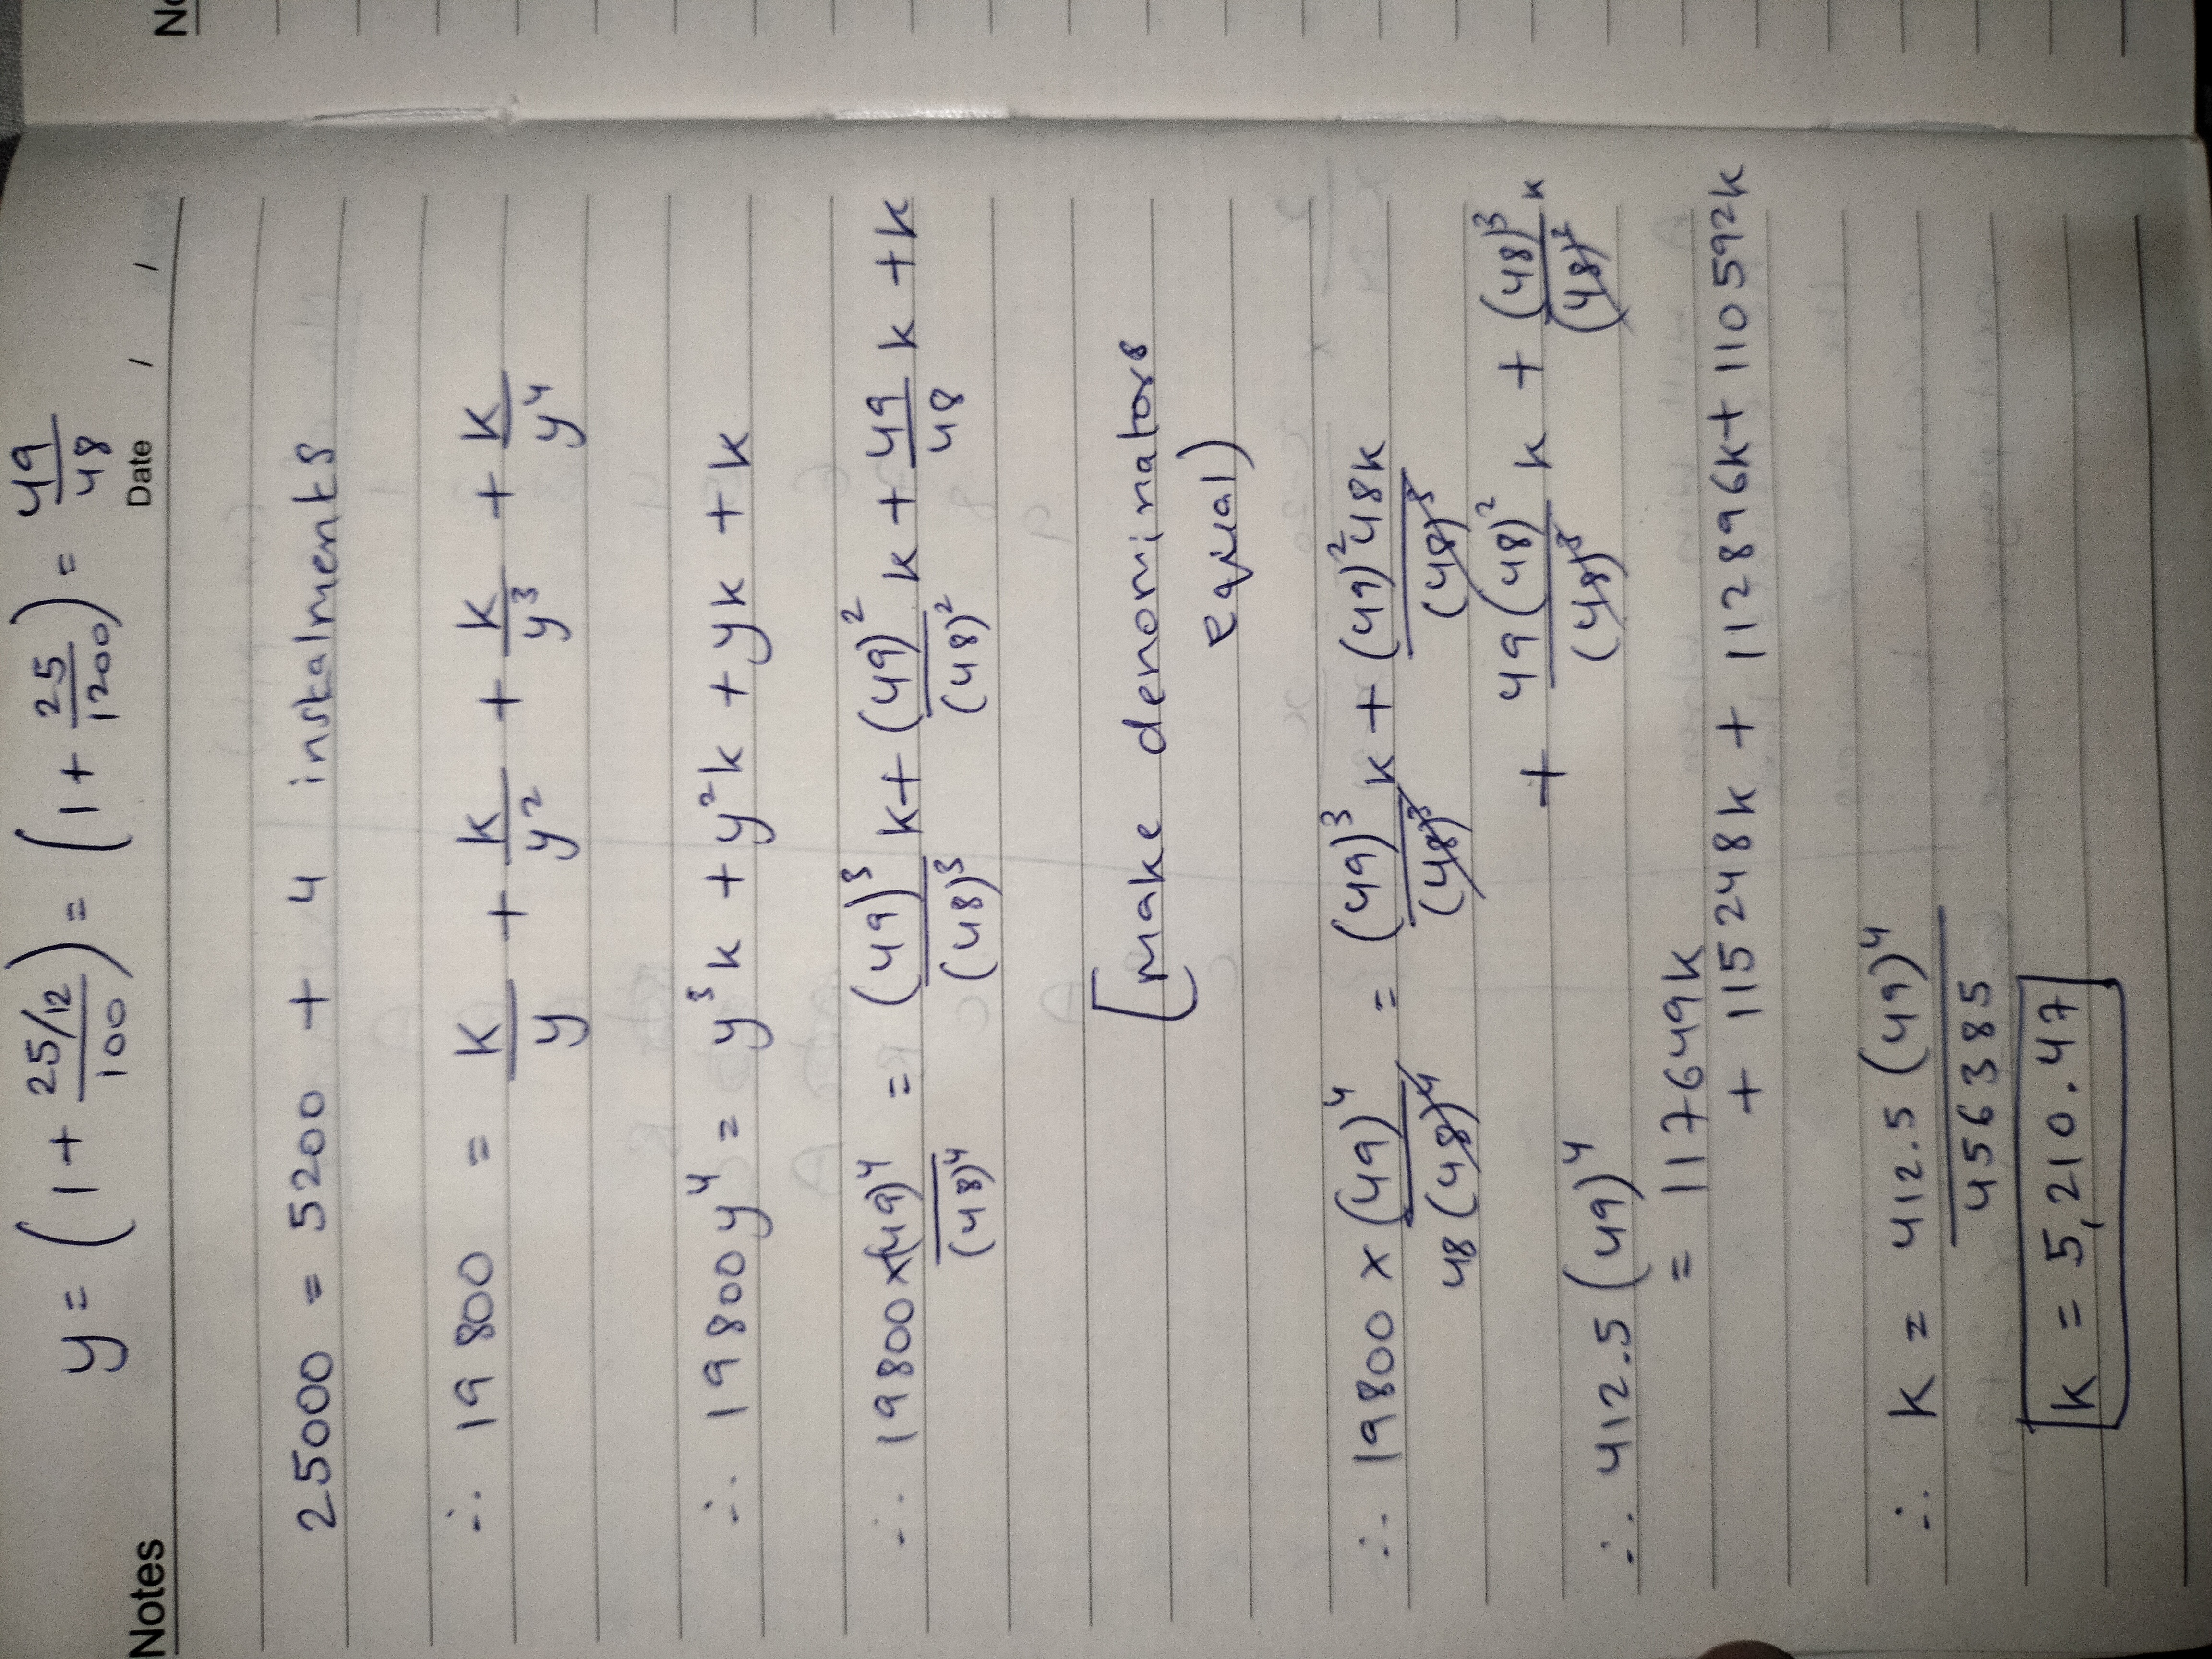 No
y = (1 + 25/12 / 100) = (1 + 25/1200) = 49/48
Notes Date / /
25000 = 5200 + 4 instalments
∴ 19800 = k/y + k/y² + k/y³ + k/y⁴
∴ 19800y⁴ = y³k + y²k + yk + k
∴ 19800 × (49)⁴/(48)⁴ = (49)³/(48)³ k + (49)²/(48)² k + 49/48 k + k
[make denominators
equal)
∴ 19800 × (49)⁴/48(48)⁴ = (49)³/(48)³ k + (49)²48k/(48)³
+ 49(48)²/(48)³ k + (48)³/(48)³ k
∴ 412.5(49)⁴
= 117649k
+ 115248k + 112896k + 110592k
∴ k = 412.5(49)⁴/456385
k = 5,210.47